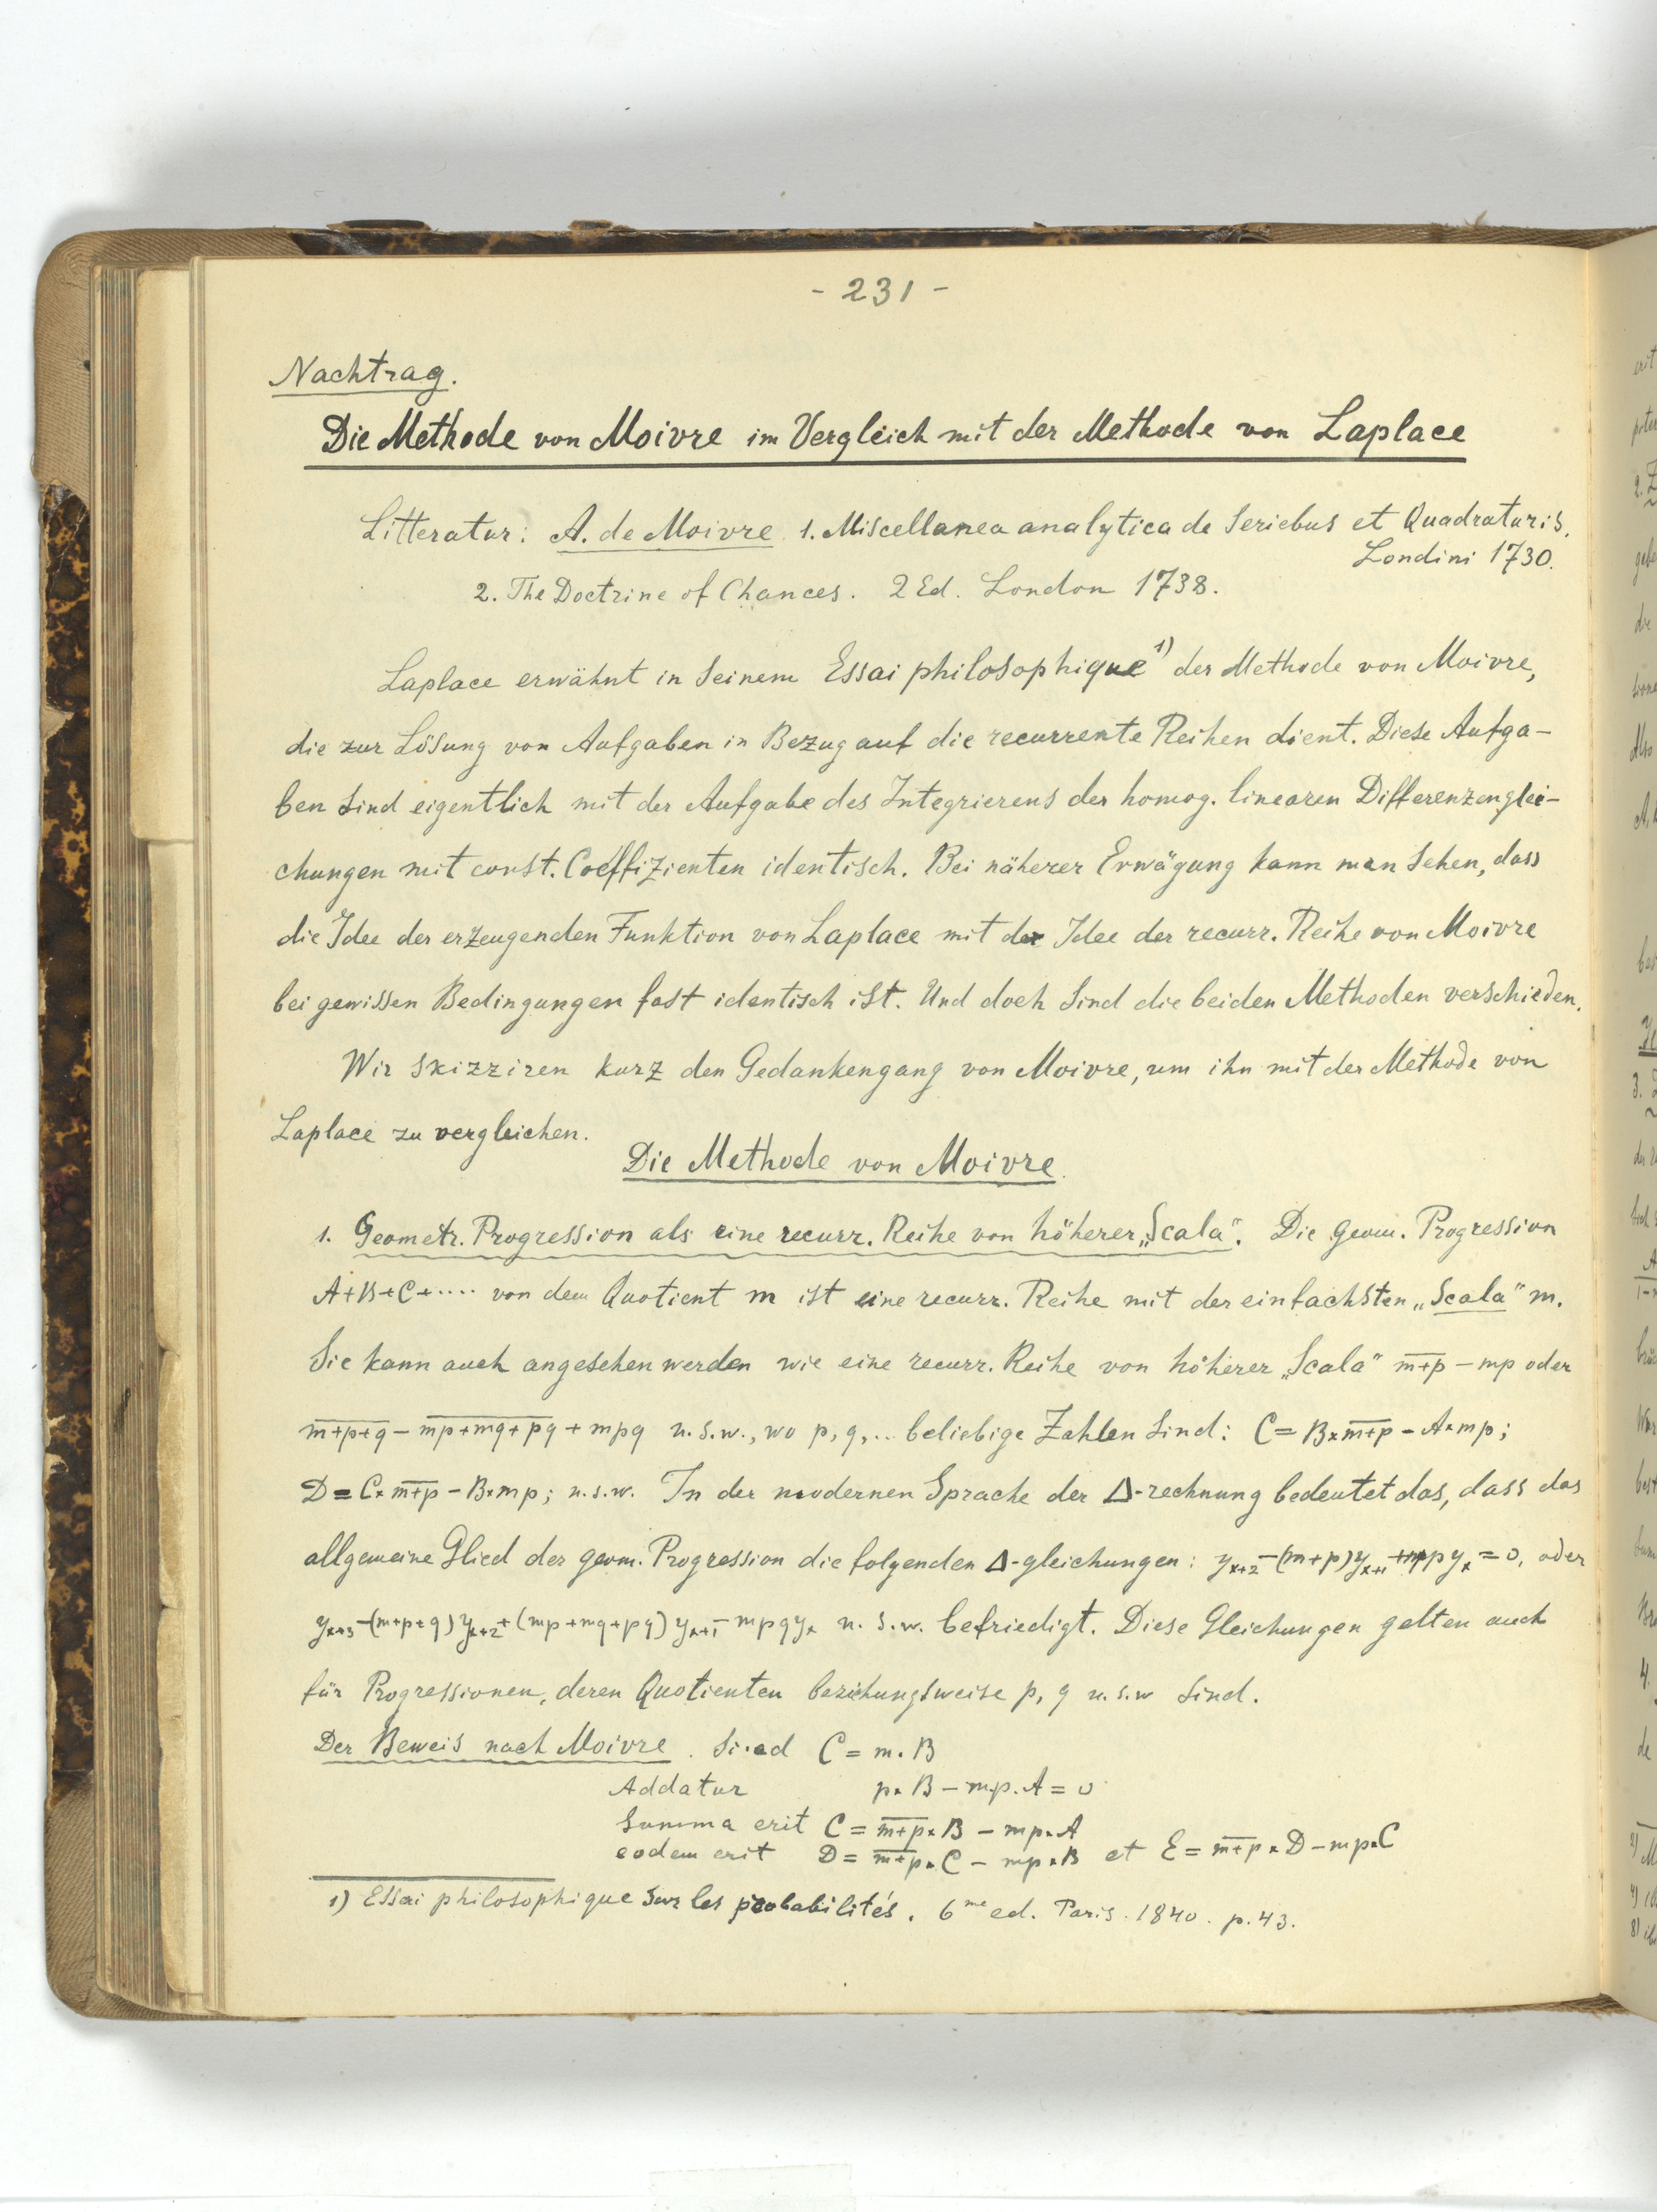 - 231 -
Nachtrag.
Die Methode von Moivre im Vergleich mit der Methode von Laplace
Litteratur: A. de Moivre 1. Miscellanea analytica de Seriebus et Quadraturis.
Londini 1730.
2. The Doctrine of Chances. 2 Ed. London 1738.
Laplace erwähnt in seinem Essai philosophique 1) der Methode von Moivre,
die zur Lösung von Aufgaben in Bezug auf die recurrente Reihen dient. Diese Aufga-
ben sind eigentlich mit der Aufgabe des Integrierens der homog. linearen Differenzenglei-
chungen mit const. Coeffizienten identisch. Bei näherer Erwägung kann man sehen, dass
die Idee der erzeugenden Funktion von Laplace mit der Idee der recurr. Reihe von Moivre
bei gewissen Bedingungen fast identisch ist. Und doch sind die beiden Methoden verschieden.
Wir skizziren kurz den Gedankengang von Moivre, um ihn mit der Methode von
Laplace zu vergleichen.
Die Methode von Moivre.
1. Geometr. Progression als eine recurr. Reihe von höherer „Scala“. Die geom. Progression
A+B+C+.... von dem Quotient m ist eine recurr. Reihe mit der einfachsten „Scala“ m.
Sie kann auch angesehen werden wie eine recurr. Reihe von höherer „Scala“ m̅+̅p̅ - mp oder
m̅+̅p̅+̅q̅ - m̅p̅+̅m̅q̅+̅p̅q̅ + mpq u.s.w., wo p, q, .. beliebige Zahlen sind: C = B×m̅+̅p̅ - A×mp;
D = C×m̅+̅p̅ - B×mp; u.s.w. In der modernen Sprache der Δ-rechnung bedeutet das, dass das
allgemeine Glied der geom. Progression die folgenden Δ-gleichungen: yₓ₊₂-(m+p)yₓ₊₁+mpyₓ=0, oder
yₓ₊₃-(m+p+q)yₓ₊₂+(mp+mq+pq)yₓ₊₁-mpqyₓ u.s.w. befriedigt. Diese Gleichungen gelten auch
für Progressionen, deren Quotienten beziehungsweise p, q u.s.w sind.
Der Beweis nach Moivre. C = m.B
Addatur p×B - m.p.A = 0
Summa erit C = m̅+̅p̅×B - mp×A
eodem erit D = m̅+̅p̅×C - mp×B et E = m̅+̅p̅×D-mp×C
1) Essai philosophique sur les probabilités. 6me ed. Paris. 1840. p. 43.